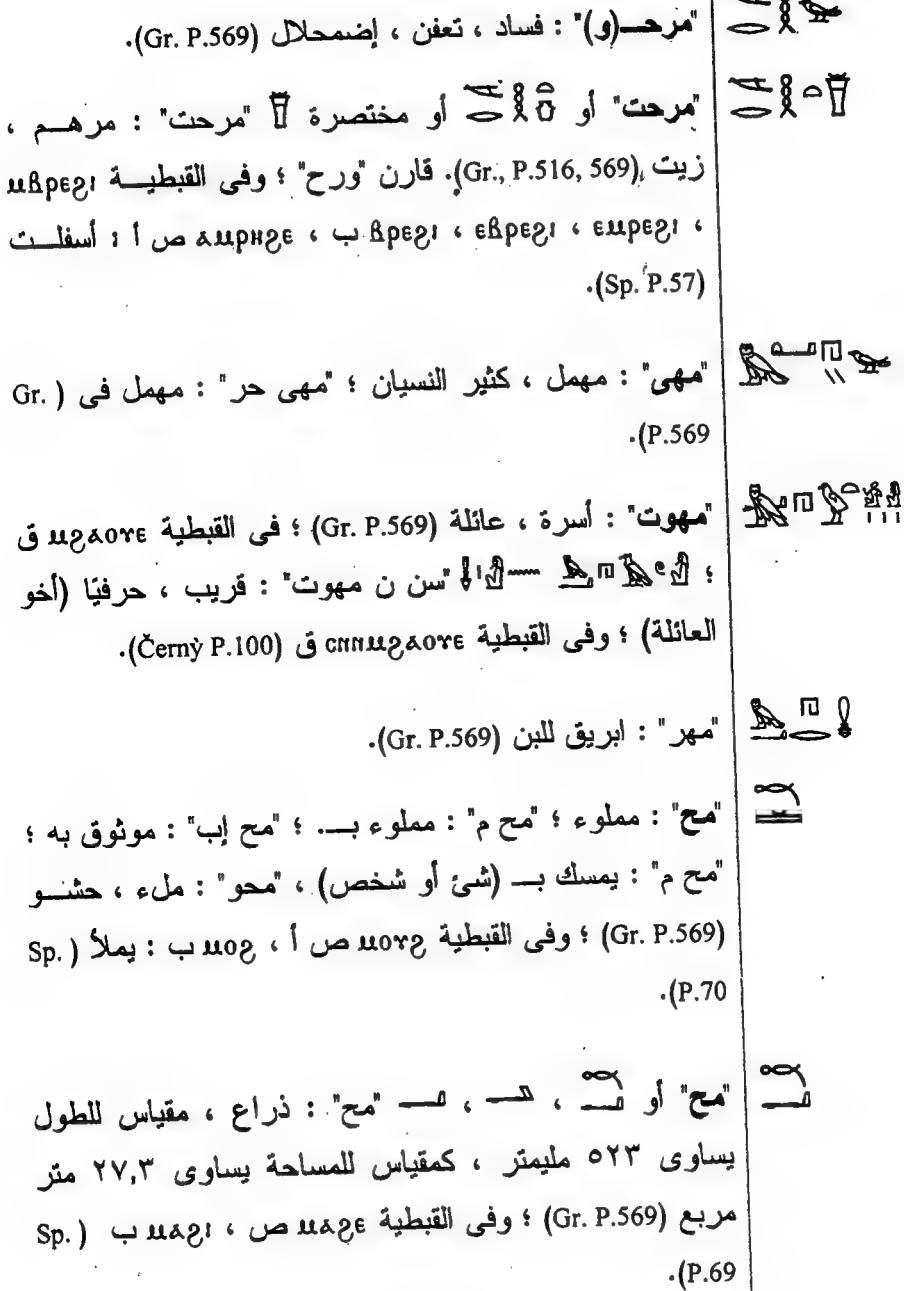 "مرحــ(و)" : فساد ، تعفن ، إضمحلال (Gr. P.569).
"مرحت" أو أو مختصرة "مرحت" : مرهـــم ،
زيت (Gr., P.516, 569). قارن "ورح" ؛ وفى القبطيـــة ⲙⲃⲣⲉϩⲓ
، ⲉⲙⲣⲉϩⲓ ، ⲉⲃⲣⲉϩⲓ ، ⲃⲣⲉϩⲓ ب ، ⲁⲙⲣⲏϩⲉ ص أ : أسفلــت
(Sp. P.57).
"مهى" : مهمل ، كثير النسيان ؛ "مهى حر" : مهمل فى (Gr.
P.569).
"مهوت" : أسرة ، عائلة (Gr. P.569) ؛ فى القبطية ⲙϩⲁⲟⲩⲉ ق
؛ "سن ن مهوت" : قريب ، حرفيًا (أخو
العائلة) ؛ وفى القبطية ⲥⲛⲛⲙϩⲁⲟⲩⲉ ق (Černỳ P.100).
"مهر" : ابريق للبن (Gr. P.569).
"مح" : مملوء ؛ "مح م" : مملوء بـــ. ؛ "مح إب" : موثوق به ؛
"مح م" : يمسك بـــ (شئ أو شخص) ، "محو" : ملء ، حشـــو
(Gr. P.569) ؛ وفى القبطية ⲙⲟⲩϩ ص أ ، ⲙⲟϩ ب : يملأ (Sp.
P.70).
"مح" أو ، ، "مح" : ذراع ، مقياس للطول
يساوى ٥٢٣ مليمتر ، كمقياس للمساحة يساوى ٢٧,٣ متر
مربع (Gr. P.569) ؛ وفى القبطية ⲙⲁϩⲉ ص ، ⲙⲁϩⲓ ب (Sp.
P.69).